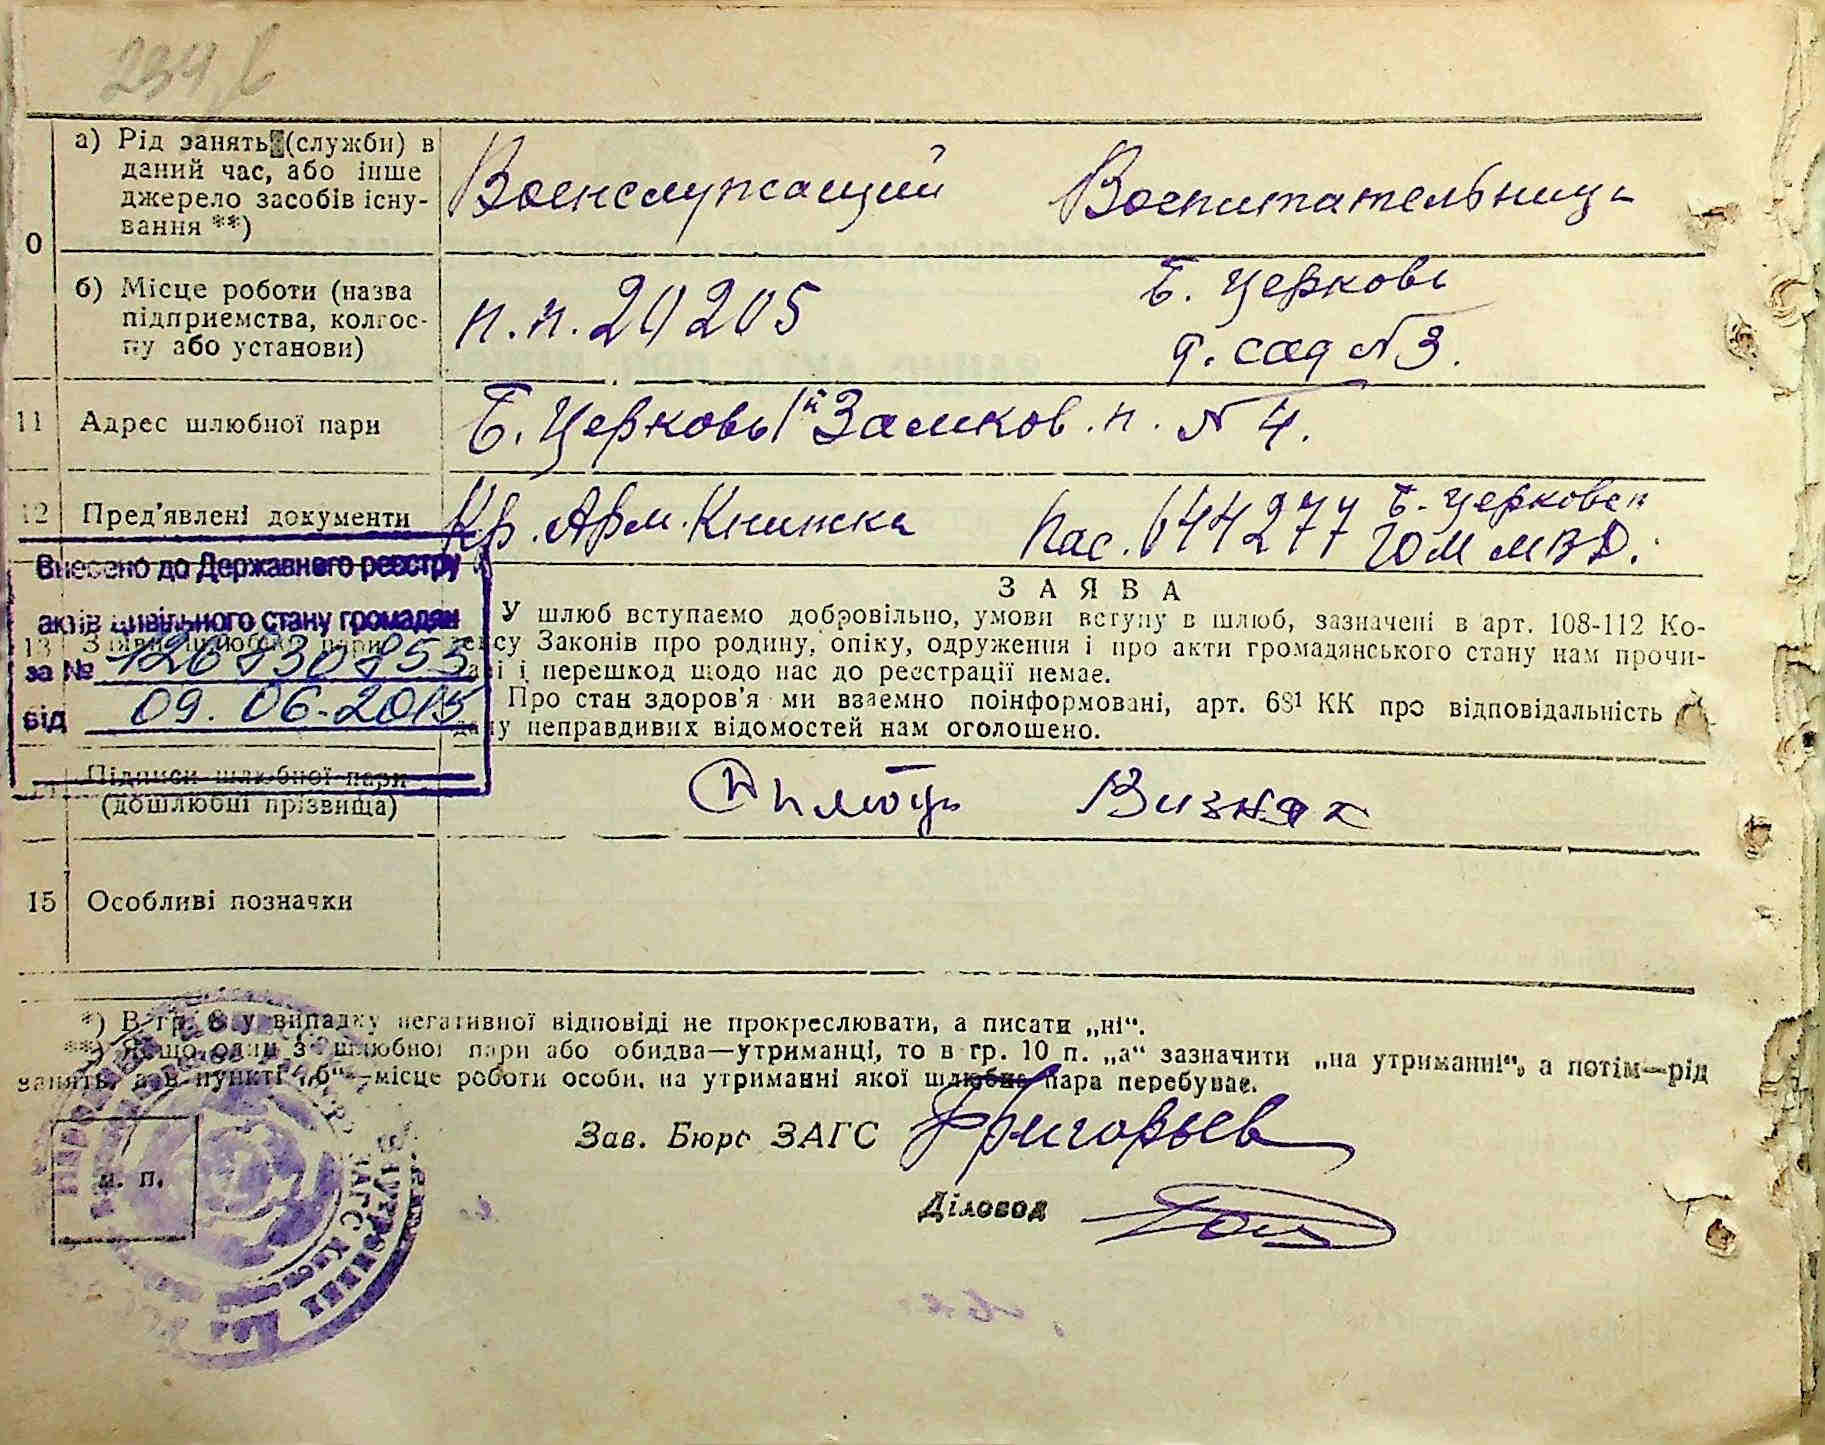 234 б
а) Рід занять (служби) в
даний час, або інше
джерело засобів існу-
вання **)
Военслужащий Воспитательница
0
б) Місце роботи (назва
підприемства, колгос-
пу або установи)
п.п. 20205
Б. Церковь
д. сад №3.
11 Адрес шлюбної пари
Б. Церковь 1й Замков. п. № 4.
12 Пред'явлені документи
Кр. Арм. Книжка Пас. 644277 Б. Церковск
ГОМ МВД.
Внесено до Державного реєстру
актів цивільного стану громадян
за № 126730753
від 09.06.2015
13 Заяви шлюбної пари
ЗАЯВА
У шлюб вступаємо добровільно, умови вступу в шлюб, зазначені в арт. 108-112 Ко-
ексу Законів про родину, опіку, одруження і про акти громадянського стану нам прочи-
ані і перешкод щодо нас до реєстрації немає.
Про стан здоров'я ми взаємно поінформовані, арт. 68¹ КК про відповідальність
дачу неправдивих відомостей нам оголошено.
Підписи шлюбної пари
(дошлюбні прізвища)
Визняк
15 Особливі позначки
*) В гр. 8 у випадку негативної відповіді не прокреслювати, а писати „ні“.
**) Якщо один з шлюбної пари або обидва—утриманці, то в гр. 10 п. „а“ зазначити „на утриманні“, а потім—рід
занять, а в пункті „б“—місце роботи особи, на утриманні якої шлюбна пара перебуває.
Зав. Бюро ЗАГС Григорьев
Діловод
м. п.